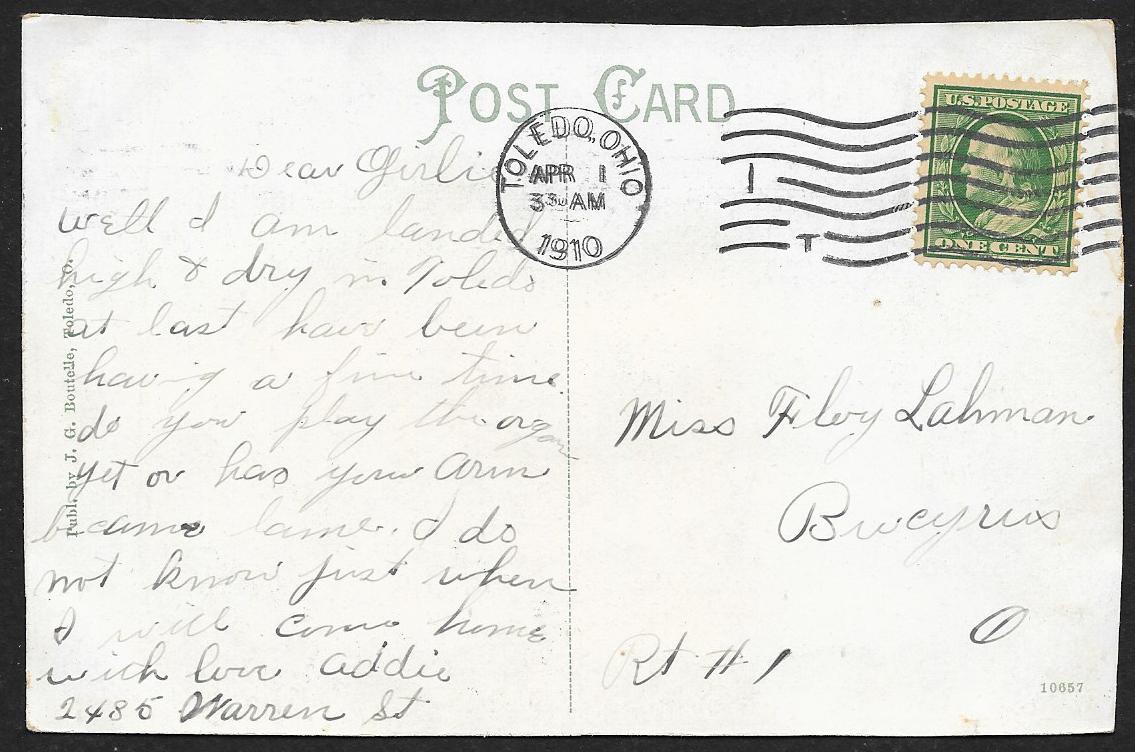 POST CARD
TOLEDO, OHIO
APR 1
330 AM
1910
1
T
U.S. POSTAGE
ONE CENT
Dear Girlie
Well I am landed
high & dry in Toledo
at last have been
having a fine time.
do you play the organ
yet or has your arm
became lame. I do
not know just when
I will come home
with love Addie
2485 Warren St
Miss Floy Lahman
Bucyrus
O
Rt # 1
Publ. by J. G. Boutelle, Toledo, O.
10657